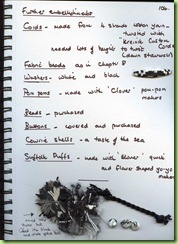 Further embellishments 106.
Cords - made from 4 strands cotton yarn -
twisted with
Kreinik Custom
needed lots of length to twist Corder
(down stairwell)
Fabric beads as in Chapter 8
Washers - white and black
Pom poms - made with 'Clover' pom-pom
makers
Beads - purchased
Buttons - covered and purchased
Cowrie Shells - a taste of the sea
Suffolk Puffs - made with 'Clover' quick
and flower shaped yo-yo
makers